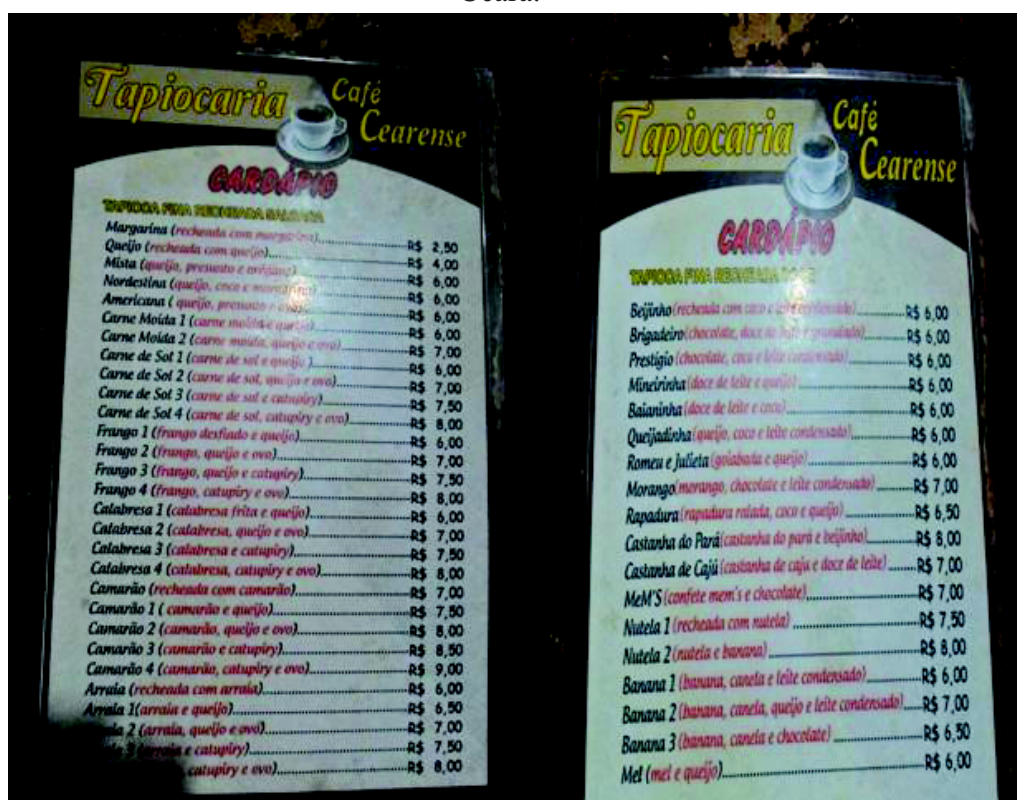 Ceará.
Tapiocaria Café Cearense
CARDÁPIO
TAPIOCA FINA RECHEADA SALGADA
Margarina (recheada com margarina) R$ 2,50
Queijo (recheada com queijo) R$ 4,00
Mista (queijo, presunto e orégano) R$ 6,00
Nordestina (queijo, coco e margarina) R$ 6,00
Americana ( queijo, presunto e ovo) R$ 6,00
Carne Moída 1 (carne moída e queijo) R$ 6,00
Carne Moída 2 (carne moída, queijo e ovo) R$ 7,00
Carne de Sol 1 (carne de sol e queijo ) R$ 6,00
Carne de Sol 2 (carne de sol, queijo e ovo) R$ 7,00
Carne de Sol 3 (carne de sol e catupiry) R$ 7,50
Carne de Sol 4 (carne de sol, catupiry e ovo) R$ 8,00
Frango 1 (frango desfiado e queijo) R$ 6,00
Frango 2 (frango, queijo e ovo) R$ 7,00
Frango 3 (frango, queijo e catupiry) R$ 7,50
Frango 4 (frango, catupiry e ovo) R$ 8,00
Calabresa 1 (calabresa frita e queijo) R$ 6,00
Calabresa 2 (calabresa, queijo e ovo) R$ 7,00
Calabresa 3 (calabresa e catupiry) R$ 7,50
Calabresa 4 (calabresa, catupiry e ovo) R$ 8,00
Camarão (recheada com camarão) R$ 7,00
Camarão 1 ( camarão e queijo) R$ 7,50
Camarão 2 (camarão, queijo e ovo) R$ 8,00
Camarão 3 (camarão e catupiry) R$ 8,50
Camarão 4 (camarão, catupiry e ovo) R$ 9,00
Arraia (recheada com arraia) R$ 6,00
Arraia 1(arraia e queijo) R$ 6,50
2 (arraia, queijo e ovo) R$ 7,00
e catupiry) R$ 7,50
catupiry e ovo) R$ 8,00
Tapiocaria Café Cearense
CARDÁPIO
TAPIOCA FINA RECHEADA DOCE
Beijinho(recheada com coco e leite condensado) R$ 6,00
Brigadeiro(chocolate, doce de leite e granulado) R$ 6,00
Prestígio(chocolate, coco e leite condensado) R$ 6,00
Mineirinha(doce de leite e queijo) R$ 6,00
Baianinha(doce de leite e coco) R$ 6,00
Queijadinha(queijo, coco e leite condensado) R$ 6,00
Romeu e Julieta(goiabada e queijo) R$ 6,00
Morango(morango, chocolate e leite condensado) R$ 7,00
Rapadura(rapadura ralada, coco e queijo) R$ 6,50
Castanha do Pará(castanha do pará e beijinho) R$ 8,00
Castanha de Cajú(castanha de caju e doce de leite) R$ 7,00
MeM'S(confete mem's e chocolate) R$ 7,00
Nutela 1(recheada com nutela) R$ 7,50
Nutela 2(nutela e banana) R$ 8,00
Banana 1(banana, canela e leite condensado) R$ 6,00
Banana 2(banana, canela, queijo e leite condensado) R$ 7,00
Banana 3(banana, canela e chocolate) R$ 6,50
Mel (mel e queijo) R$ 6,00